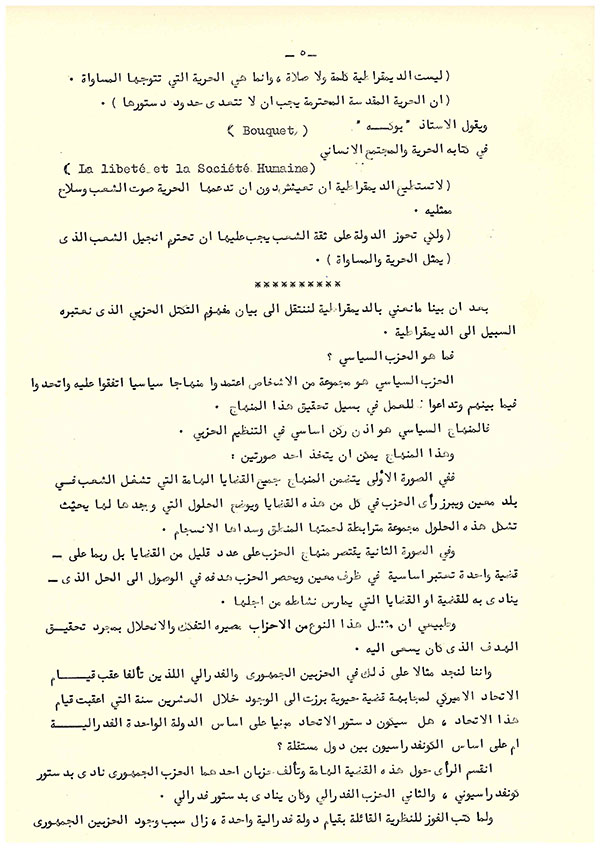 — ٥ —
( ليست الديمقراطية كلمة ولا صلاة ، وانما هي الحرية التي تتوجها المساواة .
( ان الحرية المقدسة المحترمة يجب ان لا تتعدى حدود دستورها ) .
ويقول الاستاذ " بوكــه " ( Bouquet )
في كتابه الحرية والمجتمع الانساني
( La libeté et la Société Humaine )
( لا تستطيع الديمقراطية ان تعيش دون ان تدعمها الحرية صوت الشعب وسلاح
ممثليه .
( ولكي تحوز الدولة على ثقة الشعب يجب عليها ان تحترم انجيل الشعب الذى
( يمثل الحرية والمساواة ) .
**********
بعد ان بينا مانعني بالديمقراطية لننتقل الى بيان مفهوم التكتل الحزبي الذى نعتبره
السبيل الى الديمقراطية .
فما هو الحزب السياسي ؟
الحزب السياسي هو مجموعة من الاشخاص اعتمدوا منهاجا سياسيا اتفقوا عليه واتحدوا
فيما بينهم وتداعوا : للعمل في بسيل تحقيق هذا المنهاج .
فالمنهاج السياسي هو اذن ركن اساسي في التنظيم الحزبي .
وهذا المنهاج يمكن ان يتخذ احد صورتين :
ففي الصورة الأولى يتضمن المنهاج جميع القضايا الهامة التي تشغل الشعب فــي
بلد معين ويبرز رأى الحزب في كل من هذه القضايا ويوضح الحلول التي وجدها لها بحيث
تشكل هذه الحلول مجموعة مترابطة لحمتها المنطق وسداها الانسجام .
وفي الصورة الثانية يقتصر منهاج الحزب على عدد قليل من القضايا بل ربما على —
قضية واحدة تعتبر اساسية في ظرف معين ويحصر الحزب هدفه في الوصول الى الحل الذى —
ينادى به للقضية او القضايا التي يمارس نشاطه من اجلها .
وطبيعي ان مثل هذا النوع من الاحزاب مصيره التفكك والانحلال بمجرد تحقيــق
الهدف الذى كان يسعى اليه .
واننا لنجد مثالا على ذلك في الحزبين الجمهورى والفدرالي اللذين تألفا عقب قيــام
الاتحاد الاميركي لمجابهة قضية حيوية برزت الى الوجود خلال العشرين سنة التي اعقبت قيام
هذا الاتحاد ، هل سيكون دستور الاتحاد مبنيا على اساس الدولة الواحدة الفدراليــــة
ام على اساس الكونفدراسيون بين دول مستقلة ؟
انقسم الرأى حول هذه القضية الهامة وتألف حزبان احدهما الحزب الجمهورى نادى بدستور
كونفدراسيوني ، والثاني الحزب الفدرالي وكان ينادى بدستور فدرالي .
ولما كتب الفوز للنظرية القائلة بقيام دولة فدرالية واحدة ، زال سبب وجود الحزبين الجمهورى